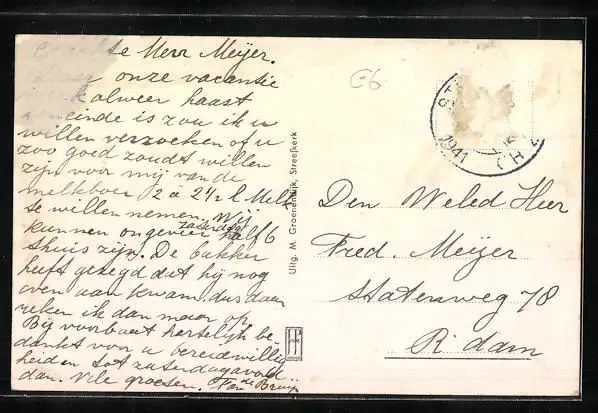 te Mevr Meijer.
onze vacantie
alweer haast
einde is zou ik u
willen verzoeken of u
zoo goed zoudt willen
zijn voor mij van de
melkboer 2 à 2 1/2 l Melk
te willen nemen. Wij
kunnen ongeveer zaterdag half 6
thuis zijn. De bakker
heeft gezegd dat hij nog
even aan kwam, dus daar
reken ik dan maar op.
Bij voorbaat hartelijk be-
dankt voor u bereidwillig-
heid en tot zaterdagavond
dan. Vele groeten. Fam de Bruijn
C6
1941
Uitg. M. Groenendijk, Streefkerk
Den Weled Heer
Fred. Meijer
Statenweg 78
R'dam